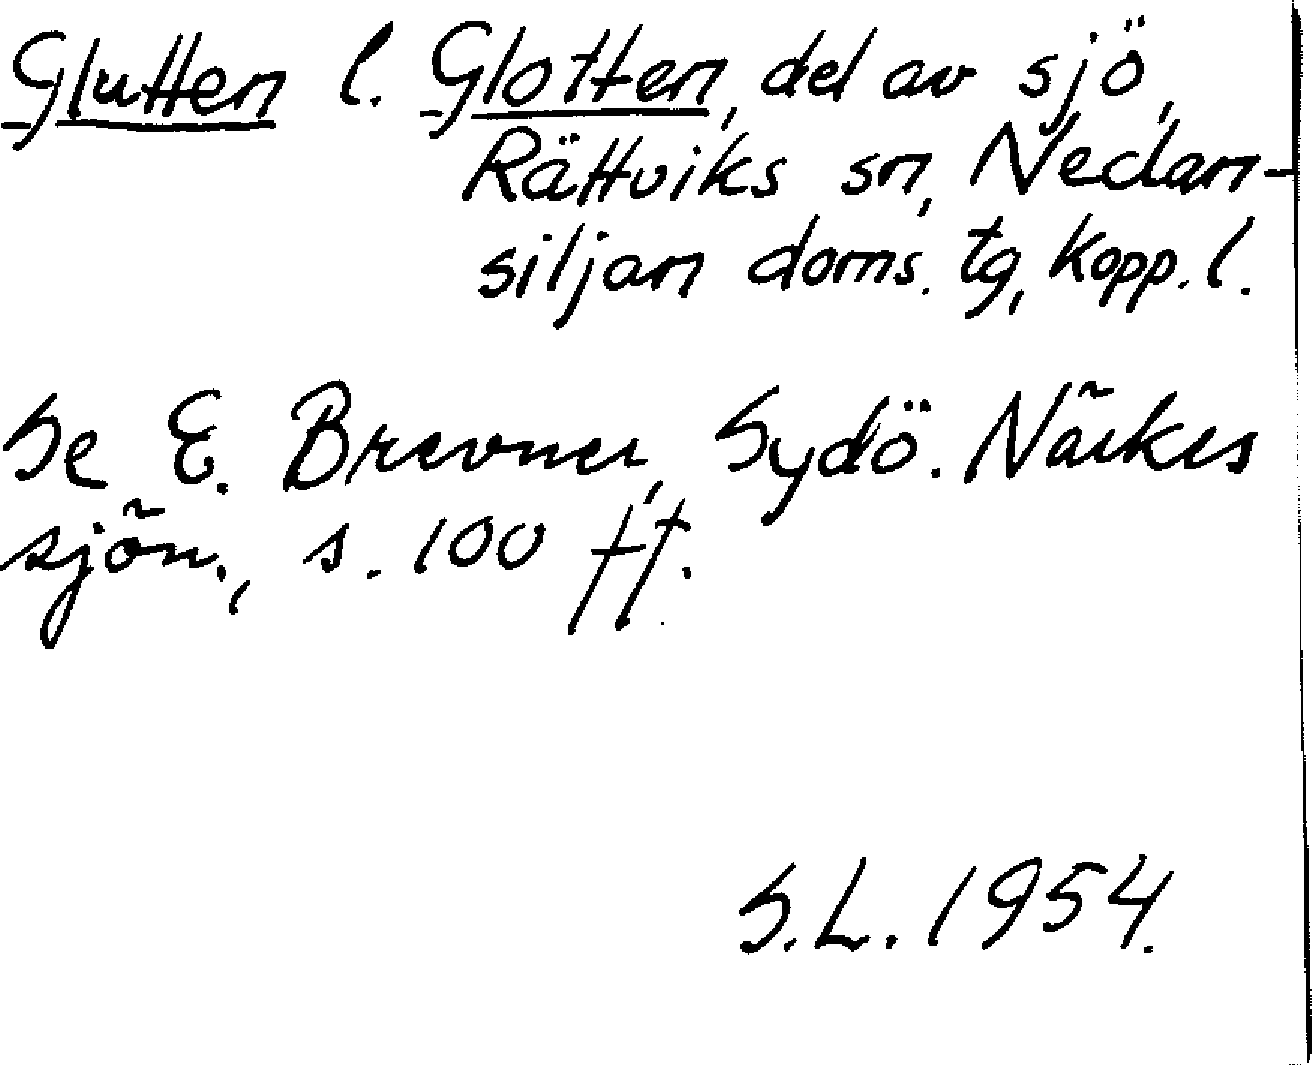 Glutten l. Glotten, del av sjö,
Rättviks sn, Nedan-
siljan doms. tg, Kopp. l.
Se E. Brevner, Sydö. Närkes
sjön., s. 100 ff.
S.L. 1954.